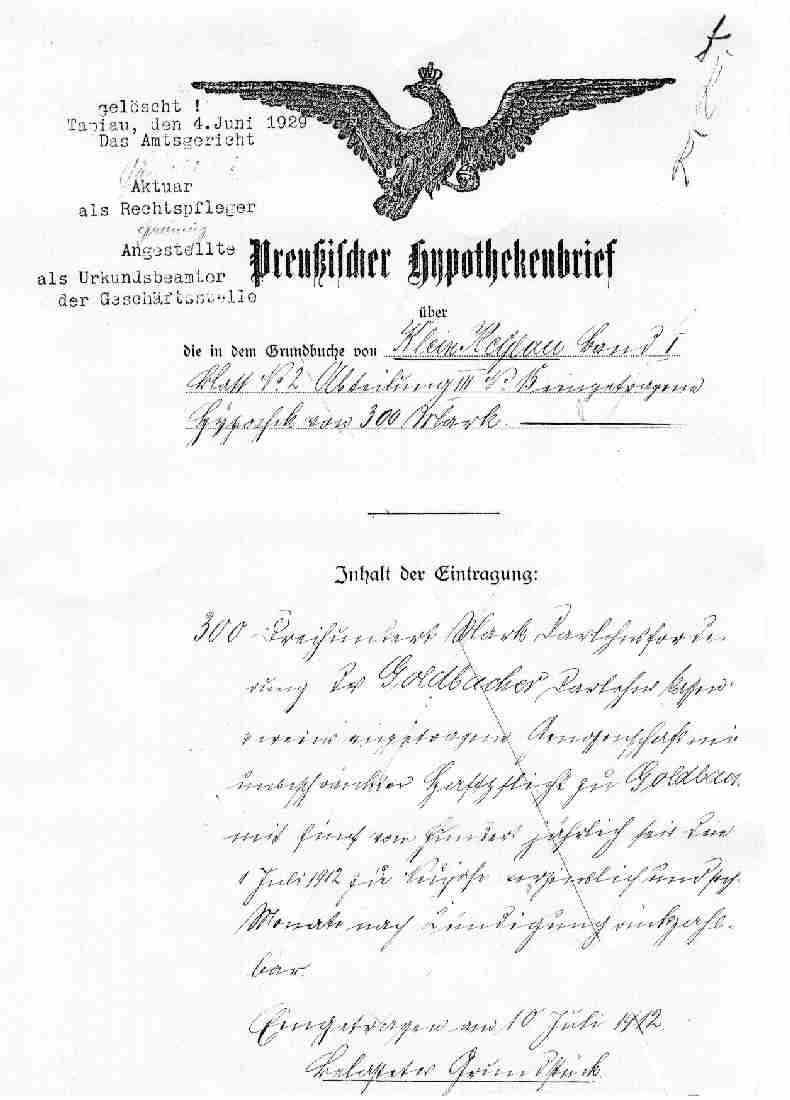 gelöscht !
Tapiau, den 4.Juni 1929
Das Amtsgericht
Aktuar
als Rechtspfleger
Angestellte
als Urkundsbeamter
der Geschäftsstelle
Preußischer Hypothekenbrief
über
die in dem Grundbuche von Klein Keylau Band I
Blatt No 2 Abteilung III No eingetragene
Hypothek von 300 Mark.
Inhalt der Eintragung:
300 Dreihundert Mark Darlehnsforde-
rung des Goldbacher Darlehns kassen-
vereins eingetragene Genossenschaft mit
unbeschränkter Haftpflicht zu Goldbach
mit fünf von Hundert jährlich seit dem
1 Juli 1912 verzinslich und sechs
Monate nach Kündigung rückzahl-
bar.
Eingetragen am 10 Juli 1912
Belastetes Grundstück